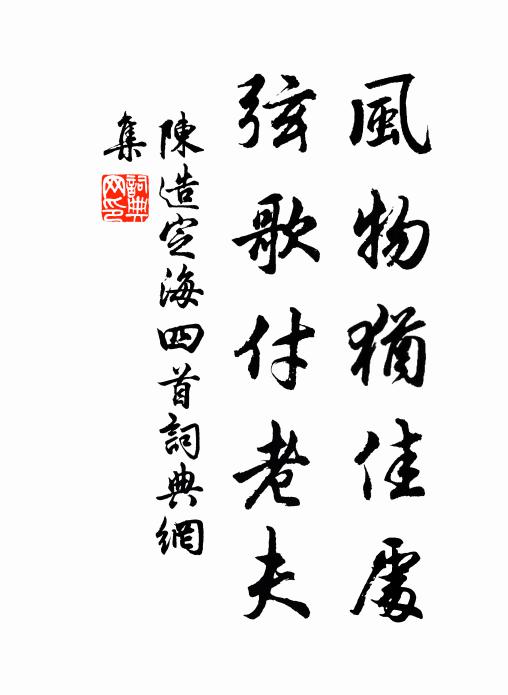 風物猶佳處
弦歌付老夫
陳造定海四首詞典網
集
詞典
网印